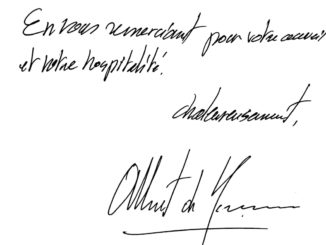 En vous remerciant pour votre accueil
et votre hospitalité.
chaleureusement,
Albert de